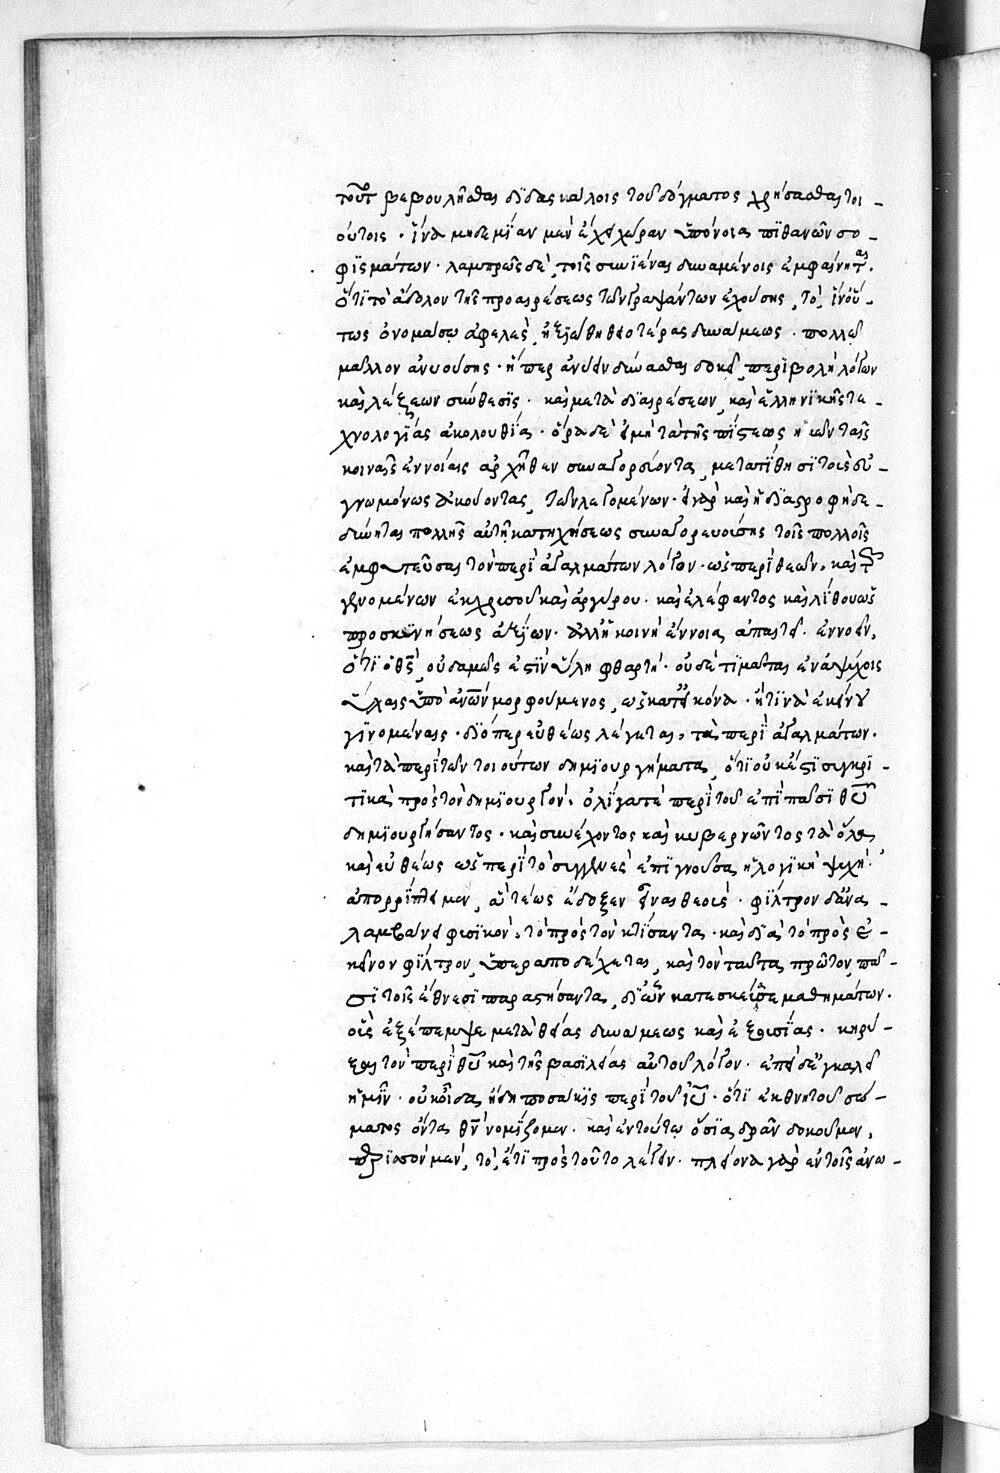 τοῦτ βεβουλῆσθαι διδασκάλοις τοῦ δόγματος χρήσασθαι τοι-
ούτοις· ἵνα μηδεμΐαν μὲν ἔχῃ χώραν ὑπόνοια πϊθανῶν σο-
φϊσμάτων· λαμπρῶς δὲ τοῖς συνϊέναι δυναμένοις ἐμφαίνηται.
ὅτϊ τὸ ἄδολον τῆς προαιρέσεως τῶν γραψάντων ἐχούσης, τὸ, ἵν' οὕ-
τως ὀνομάσω ἀφελὲς, ἠξϊώθη θειοτέρας δυνάμεως· πολλῶ
μᾶλλον ἀνυούσης· ἤπερ ἀνύειν δύνασθαι δοκεῖ, περϊβολὴ λόγων
καὶ λέξεων σύνθεσϊς· καὶ μετὰ διαιρέσεων, καὶ ἑλληνϊκῆς τε-
χνολογίας ἀκολουθία. ὅρα δὲ εἰ μὴ τὰ τῆς πίστεως ἡμῶν ταῖς
κοιναῖς ἐννοίαις ἀρχῆθεν συναγορεύοντα, μετατίθησϊ τοὺς εὐ-
γνωμόνως ἀκούοντας, τῶν λεγομένων· εἰ γὰρ καὶ ἡ διαστροφὴ δε-
δύνηται πολλῆς αὐτῆ κατηχήσεως συναγορευούσης τοῖς πολλοῖς
ἐμφυτεῦσαι τὸν περὶ ἀγαλμάτων λόγον· ὡς περὶ θεῶν, καὶ τῶν
γινομένων ἐκ χρυσοῦ καὶ ἀργύρου· καὶ ἐλέφαντος καὶ λίθου ὡς
προσκυνήσεως ἀξίων· ἀλλ' ἡ κοινὴ ἔννοια ἀπαιτεῖ ἐννοεῖν,
ὅτϊ ὁ θς, οὐδαμῶς ἐστὶν ὕλη φθαρτή· οὐδὲ τιμᾶται ἐν ἀψύχοις
ὕλαις ὑπὸ ἀνων μορφούμενος, ὡς κατ' εἰκόνα· ἤ τινα ἐκείνου
γϊνομέναις· διόπερ εὐθέως λέγεται, τὰ περὶ ἀγαλμάτων.
καὶ τὰ περὶ τῶν τοιούτων δημιουργήματα, ὅτϊ οὐκ ἔστϊ συγκρι-
τϊκὰ πρὸς τὸν δημιουργόν· ὀλίγα τε περὶ τοῦ ἐπὶ πᾶσϊ θυ
δημϊουργήσαντος· καὶ συνέχοντος καὶ κυβερνῶντος τὰ ὅλα,
καὶ εὐθέως ὡς περὶ τὸ συγγενὲς ἐπϊγνοῦσα ἡ λογϊκὴ ψυχὴ·
ἀπορρίπτει μὲν, ἃ τέως ἔδοξεν εἶναι θεούς· φίλτρον δ' ἀνα-
λαμβάνει φυσϊκὸν, τὸ πρὸς τὸν κτίσαντα· καὶ διὰ τὸ πρὸς ἐ-
κεῖνον φίλτρον, ὑπεραποδέχεται, καὶ τὸν ταῦτα πρῶτον πᾶ-
σϊ τοῖς ἔθνεσϊ παραστήσαντα, δι' ὧν κατεσκεύασε μαθημάτων.
οὓς ἐξέπεμψε μετὰ θείας δυνάμεως καὶ ἐξουσίας· κηρύ-
ξαι τὸν περὶ θυ καὶ τῆς βασϊλείας αὐτοῦ λόγον. ἐπεὶ δ' ἐγκαλεῖ
ἡμῖν· οὐκ οἶδα, ἤδη ποσάκις περὶ τοῦ ιυ· ὅτϊ ἐκ θνητοῦ σώ-
ματος ὄντα, θν νομίζομεν· καὶ ἐν τούτω ὅσϊα δρᾶν δοκοῦμεν,
περϊσσὸν μὲν, τὸ, ἔτϊ πρὸς τοῦτο λέγειν· πλείονα γὰρ ἐν τοῖς ἀνω-